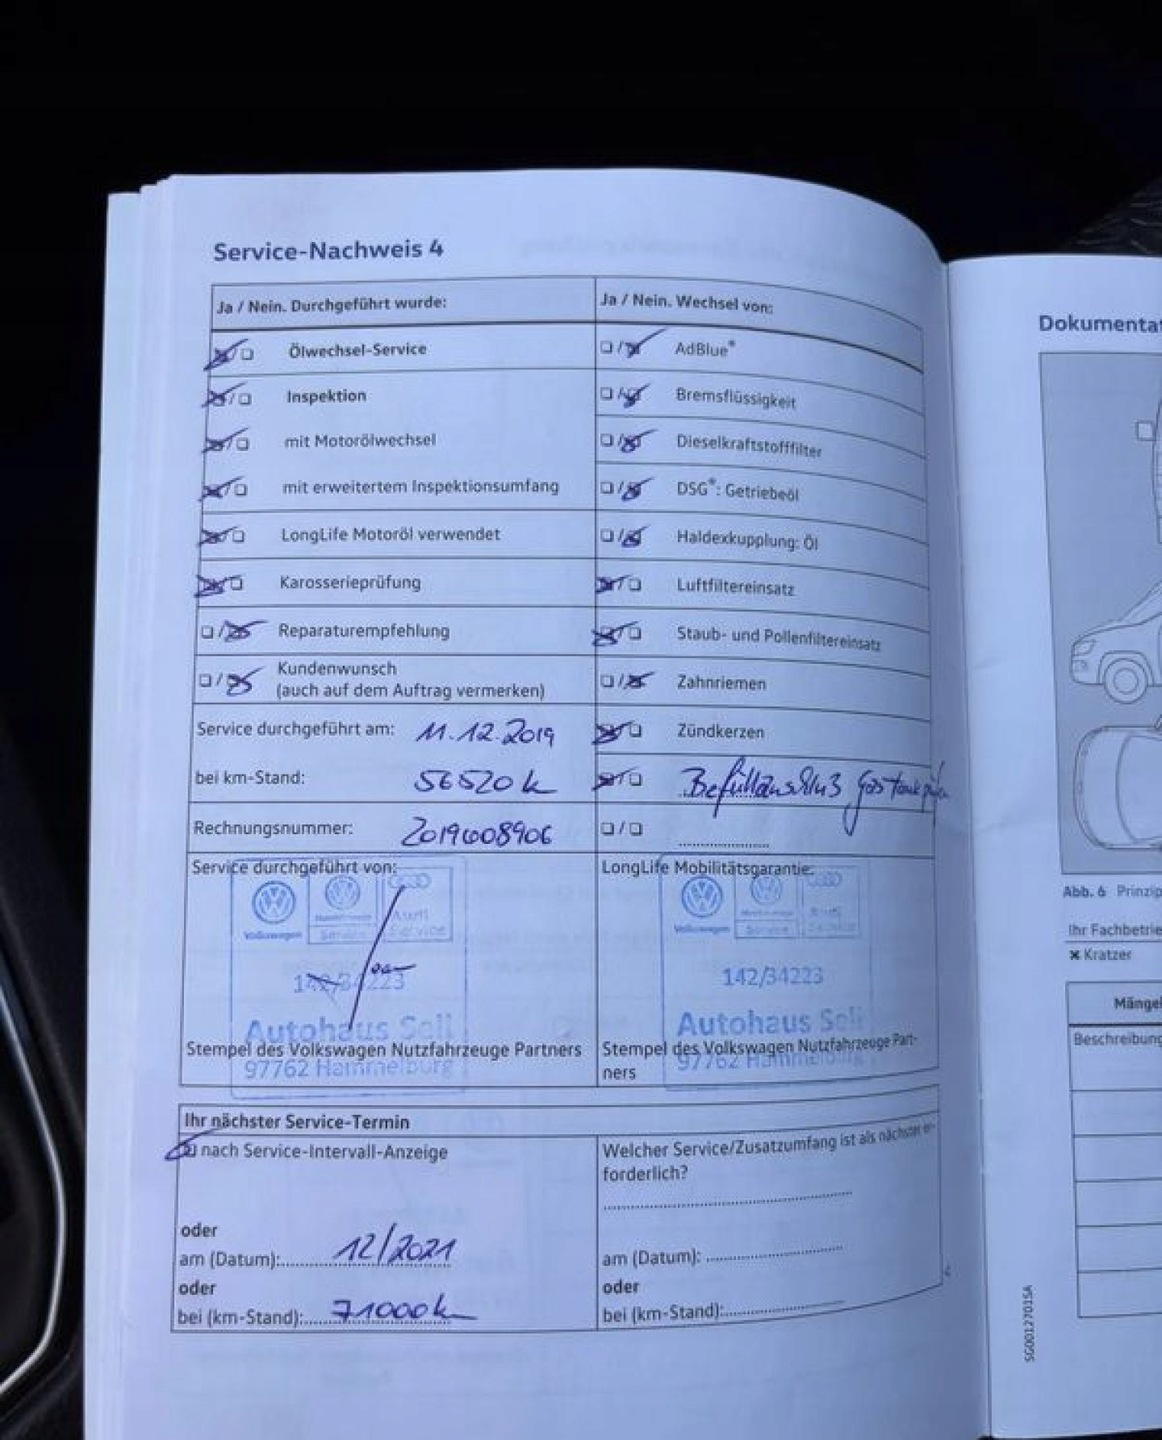 Service-Nachweis 4
Ja / Nein. Durchgeführt wurde:
Ölwechsel-Service
Inspektion
mit Motorölwechsel
mit erweitertem Inspektionsumfang
LongLife Motoröl verwendet
Karosserieprüfung
Reparaturempfehlung
Kundenwunsch
(auch auf dem Auftrag vermerken)
Service durchgeführt am: 11.12.2019
bei km-Stand: 56520 k
Rechnungsnummer: 2019008906
Ja / Nein. Wechsel von:
AdBlue®
Bremsflüssigkeit
Dieselkraftstofffilter
DSG®: Getriebeöl
Haldexkupplung: Öl
Luftfiltereinsatz
Staub- und Pollenfiltereinsatz
Zahnriemen
Zündkerzen
Befüllanschluß Gastank
Service durchgeführt von:
Volkswagen
Service
Audi
Service
142/34223
Autohaus
97762 Hammelburg
Stempel des Volkswagen Nutzfahrzeuge Partners
LongLife Mobilitätsgarantie:
Volkswagen
Service
Audi
Service
142/34223
Autohaus
97762 Hammelburg
Stempel des Volkswagen Nutzfahrzeuge Part-
ners
Ihr nächster Service-Termin
nach Service-Intervall-Anzeige
oder
am (Datum): 12/2021
oder
bei (km-Stand): 71000k
Welcher Service/Zusatzumfang ist als nächster er-
forderlich?
am (Datum):
oder
bei (km-Stand):
Dokumentat
Abb. 6 Prinzip
Ihr Fachbetrie
× Kratzer
Mängel
Beschreibung
SG0012701SA